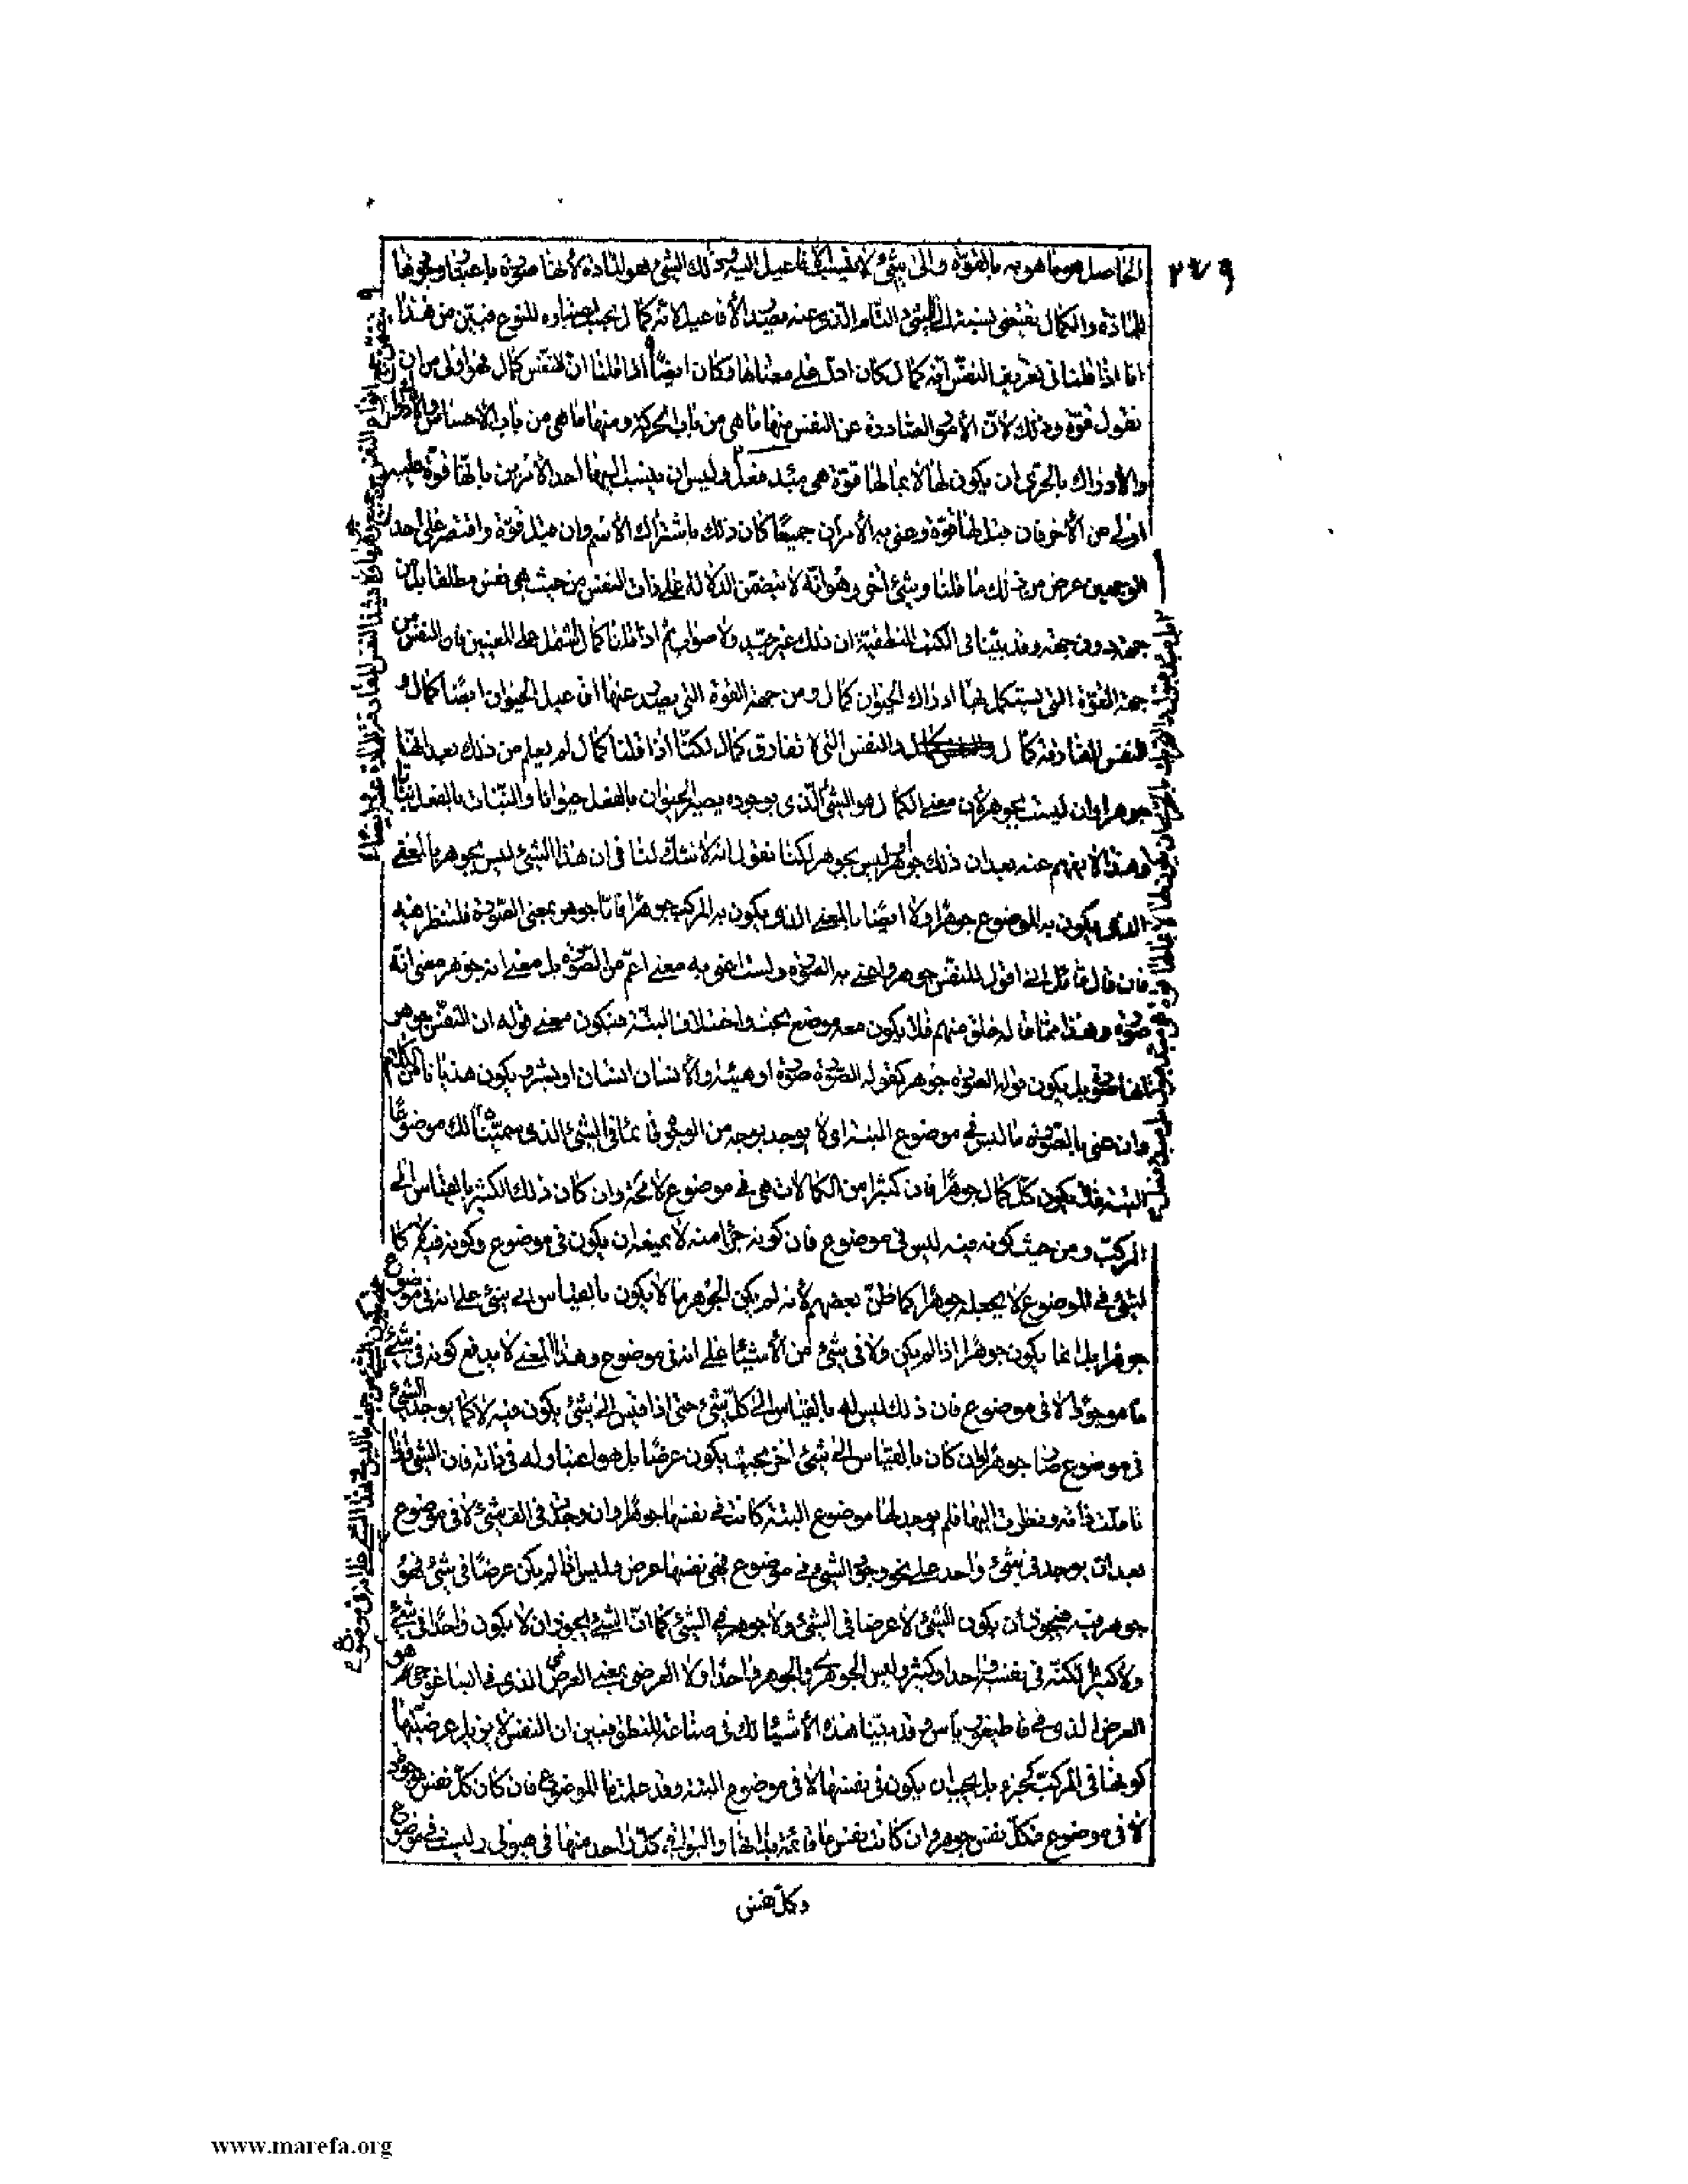 ٢٧٩
الحاصل هو ما هو به بالقوّة والى شيء لا ينسب الأفاعيل اليه وذلك الشيء هو المادة لأنها صورة باعتبار وجودها
للمادّة والكمال يقتضى نسبة الى الشيء التام الذى عنه يصدر الأفاعيل لانّه كمال بحسب اعتباره للنوع فبيّن من هذا
انا اذا قلنا فى تعريف النفس انه كمال كان ادلّ على معناها وكان ايضًا اذا قلنا ان النفس كمال فهو اولى من ان
نقول قوّة وذلك لأنّ الأمور الصادرة عن النفس منها ما هى من باب الحركة ومنها ما هى من باب الاحساس والادراك
والادراك بالحرى ان يكون لها لا بما لها قوّة هى مبدء فعل وليس ان ينسب اليها احد الأمرين بانّها قوّة عليه
اولى من الأخر فان قيل لها قوّة وعنى به الأمران جميعًا كان ذلك باشتراك الأسم وان قيل قوّة واقتصر على احد
الوجهين عرض من ذلك ما قلنا وشيء أخر وهو انّه لا يتضمّن الدلالة على ذات النفس من حيث هى نفس مطلقا بل من
جهة دون جهة وقد بيّنا فى الكتب المنطقية ان ذلك غير جيّد ولا صواب ثم اذا قلنا كمال اشتمل على المعنيين فان النفس من
جهة القوّة التى يستكمل بها ادراك الحيوان كمال ومن جهة القوة التى يصدر عنها افاعيل الحيوان ايضًا كمال و
النفس المفارقة كمال والنفس التى لا تفارق كمال لكنّا اذا قلنا كمال لم يعلم من ذلك بعد انّها
جوهر او ان ليست بجوهر لأن معنى الكمال هو الشيء الّذى بوجوده يصير الحيوان بالفعل حيوانا والنبات بالفعل نباتا
وهذا لا يفهم عنه بعد ان ذلك جوهر او ليس بجوهر لكنا نقول انه لا شك لنا فى ان هذا الشيء ليس بجوهر بالمعنى
الذى يكون به الموضوع جوهرًا ولا ايضًا بالمعنى الذى يكون به المركب جوهرًا فامّا جوهر بمعنى الصّورة فلننظر فيه
فان قال قائل انى اقول للنفس جوهر واعنى به الصورة ولست اعنى به معنى اعمّ من الصّورة بل معنى انه جوهر معنى انّه
صورة وهذا ممّا قاله خلق منهم فلا يكون معه موضع بحث واختلاف البتّة فيكون معنى قوله ان النفس جوهر
انها صورة بل يكون قوله الصورة جوهر كقوله الصورة صورة او هيئة والأنسان انسان او بشر ويكون هذيانا من الكلام
وان عنى بالصّورة ما ليس فى موضوع البتة اى لا يوجد بوجه من الوجوه قائما فى الشيء الذى سمّيناه لك موضوعًا
البتة فلا يكون كلّ كمال جوهرًا فان كثيرًا من الكمالات هى فى موضوع لا محة وان كان ذلك الكثير بالقياس الى
المركّب ومن حيث كونه فيه ليس فى موضوع فان كونه جزءًا منه لا يمنعه ان يكون فى موضوع وكونه فيه لا كا
لشيء فى الموضوع لا يجعله جوهرًا كما ظنّ بعضهم لأنه لم يكن الجوهر ما لا يكون بالقياس الى شيء على انه فى موضوع
جوهرا بل انما يكون جوهرًا اذا لم يكن ولا فى شيء من الأشياء على انه فى موضوع وهذا المعنى لا يدفع كونه فى شيء
ما موجودًا لا فى موضوع فان ذلك ليس له بالقياس الى كلّ شيء حتى اذا قيس الى شيء يكون فيه لا كما يوجد الشيء
فى موضوع صار جوهرًا وان كان بالقياس الى شيء أخر بحيث يكون عرضًا بل هو اعتبار له فى ذاته فان الشيء اذا
تأملت ذاته ونظرت اليها فلم يوجد لها موضوع البتة كانت فى نفسها جوهرًا وان وجدت فى الف شيء لا فى موضوع
بعد ان يوجد فى شيء واحد على نحو وجود الشيء فى موضوع فهى فى نفسها عرض وليس اذا لم يكن عرضًا فى شيء فهو
جوهر فيه فيجوز ان يكون الشيء لا عرضا فى الشيء ولا جوهر فى الشيء كما انّ الشيء يجوز ان لا يكون واحدًا فى شيء
ولا كثيرًا لكنّه فى نفسه واحد او كثير وليس الجوهرى والجوهر واحدًا ولا العرض بمعنى العرضى الذى فى ايساغوجى هو
العرض الذى فى قاطيغورياس وقد بيّنا هذه الأشياء لك فى صناعة المنطق فبين ان النفس لا يزيل عرضيّتها
كونها فى المركّب كجزء بل يجب ان يكون فى نفسها لا فى موضوع البتة وقد علمت ما الموضوع فان كان كلّ نفس موجودة
لا فى موضوع فكلّ نفس جوهر وان كانت نفس ما قائمة بذاتها والبواقى كلّ واحد منها فى هيولى وليست فى موضوع
وكلّ نفس
www.marefa.org